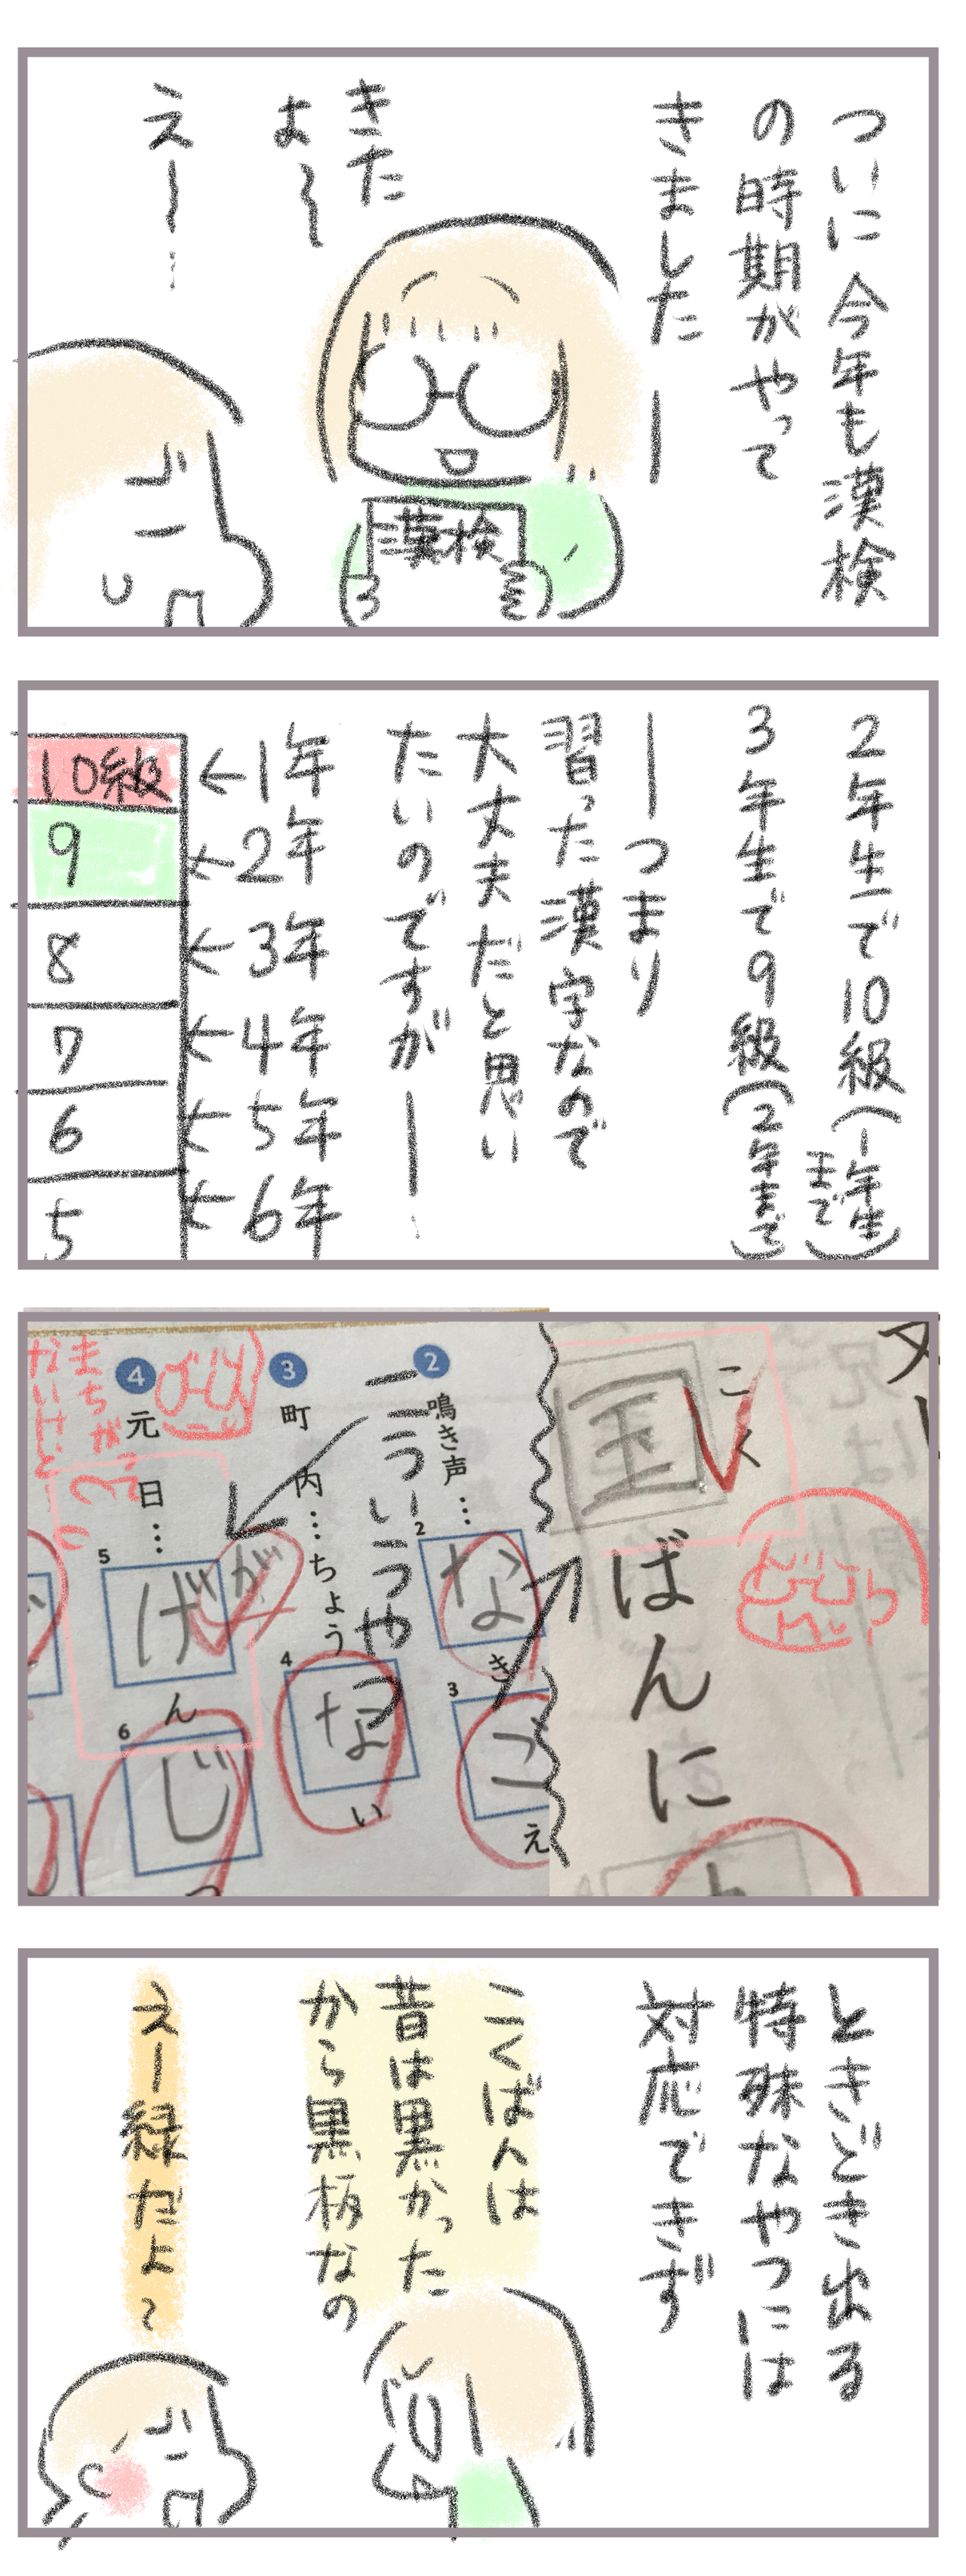 ついに今年も漢検
の時期がやって
きました
きた
よ〜
え〜…
漢検
2年生で10級(1年生
まで)
3年生で9級(2年まで)
ーつまり
習った漢字なので
大丈夫だと思い
たいのですがー…
1年
2年
3年
4年
5年
6年
10級
9
8
7
6
5
こく
国
ばんに
② 鳴き声…
2 な
き
3 ご
え
こういうやつ
③ 町内…ちょう
4 な
い
④ 元日…
が
5 げ
ん
6 じ
つ
まちがって
ないけど
ときどき出る
特殊なやつには
対応できず
こくばんは
昔は黒かった
から黒板なの
えー緑だよ〜